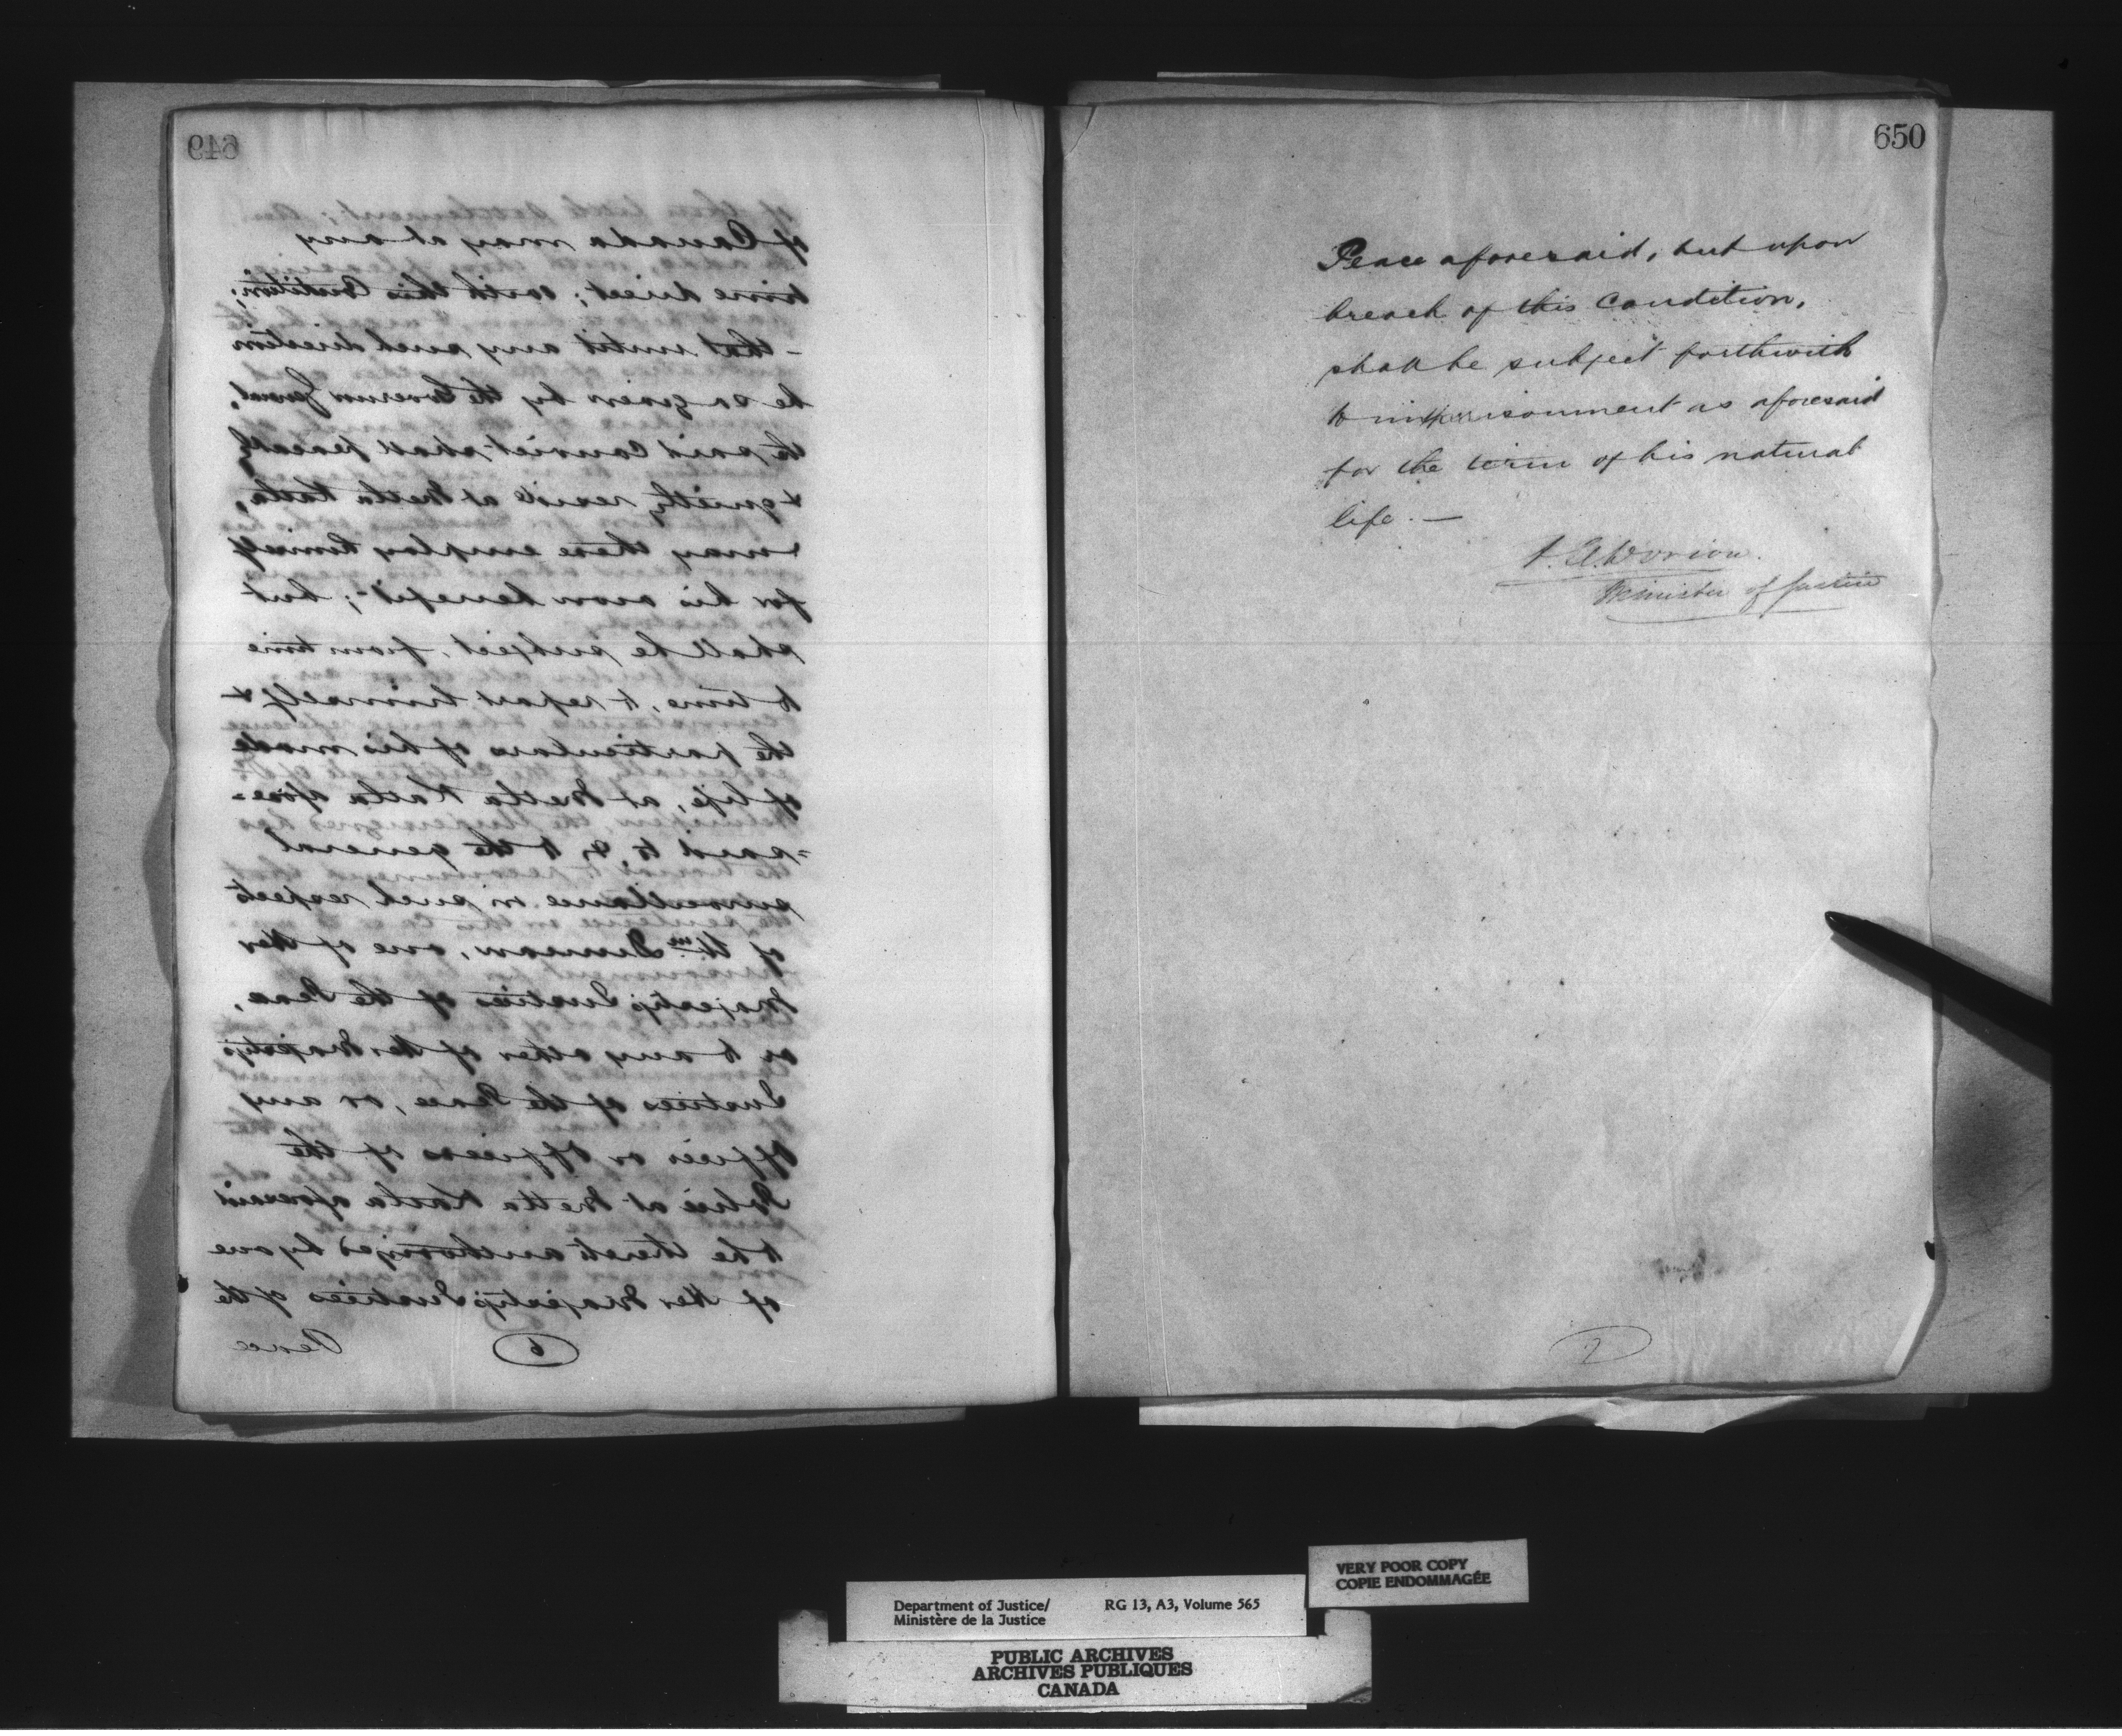 649
of Canada may at any
time direct; with this Condition;
- that until any such direction
be so given by the Governor General,
the said Convict shall peaceably
& quietly reside at Metla Katla,
& may there employ himself
for his own benefit; but
shall be subject, from time
to time, to report himself &
the particulars of his mode
of life, at Metla Katla afore=
=said to, & to the general
surveillance in such respects
of Wm Duncan, one of Her
Majesty's Justices of the Peace,
or to any other of Her Majesty's
Justices of the Peace, or any
Officer or Officers of the
Police at Metla Katla aforesaid
to be thereto authorized by one
of Her Majesty's Justices of the
Peace
6
650
Peace aforesaid, but upon
breach of this Condition,
shall be subject forthwith
to imprisonment as aforesaid
for the term of his natural
life. —
A. A. Dorion.
Minister of Justice
7
VERY POOR COPY
COPIE ENDOMMAGÉE
Department of Justice/ RG 13, A3, Volume 565
Ministère de la Justice
PUBLIC ARCHIVES
ARCHIVES PUBLIQUES
CANADA